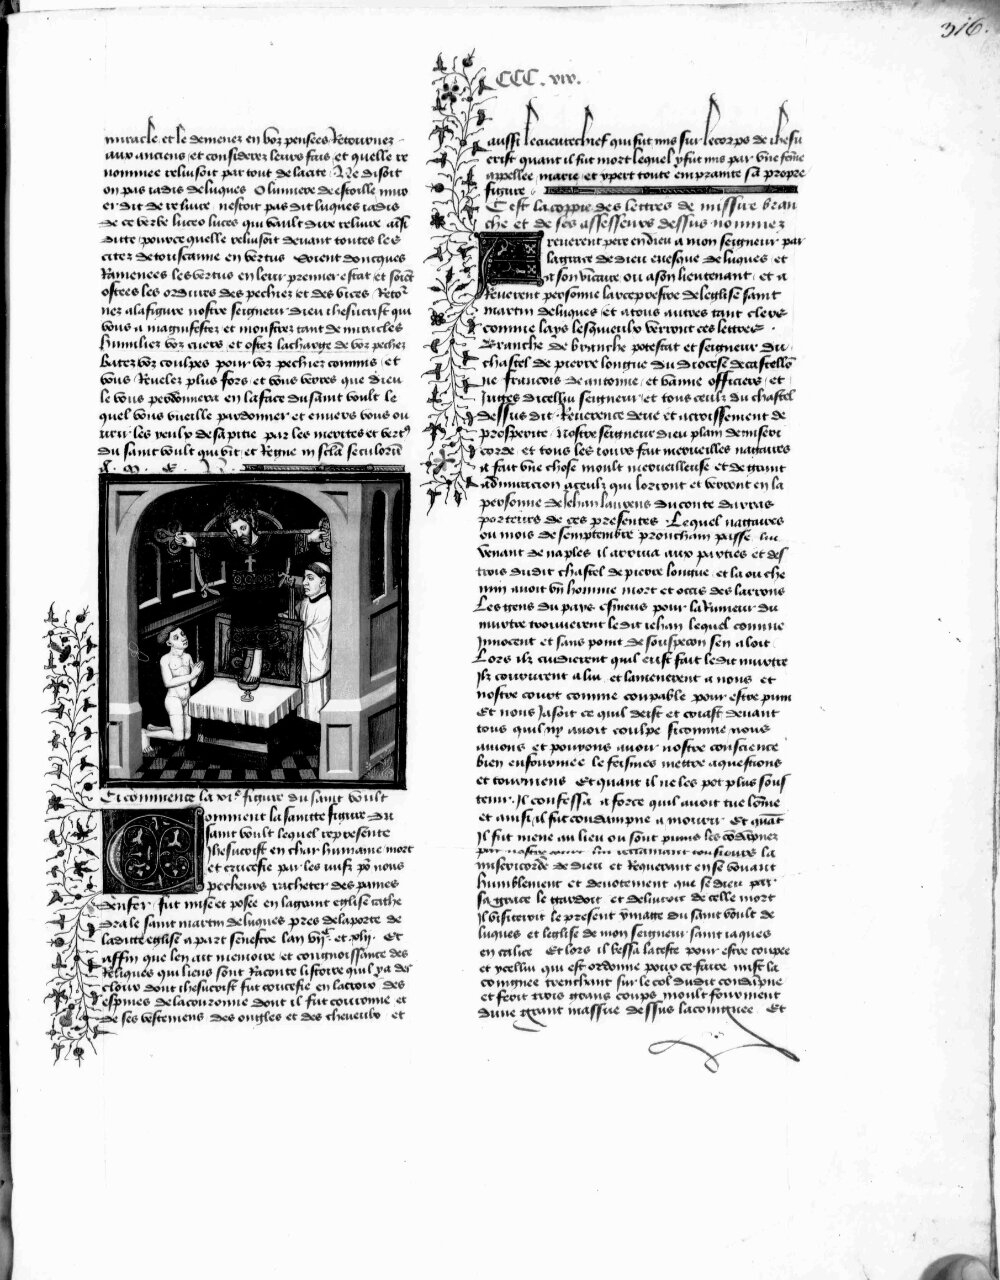 316.
CCC. xiv.
miracle et le demenez en voz pensees Retournez
aux anciens et considerez leurs fais et quelle re
nommee reluisoit par tout de la cite. Ne disoit
on pas iadis de luques O lumiere
de ce verbe luceo luces qui vault dire reluire ainsi
ditte pource quelle reluisoit devant toutes les
citez de touscanne en vertus Soient doncques
Ramenees les vertus en leur premier estat et soient
ostees les ordures des pechiez et des vices Retor
nez a la figure nostre seigneur dieu ihesucrist qui
vous a magnifestez et monstrez tant de miracles
humiliez voz cuers et ostez la charge de voz pechez
batez voz coulpes pour voz pechiez commis et
vous Revelez plus fors et vous verrez que dieu
le vous perdonnera en la face du saint voult le
quel vous vueille pardonner et envers vous ou
urir les yeulx de sa pitie par les merites et vert9
du saint voult qui vit et Regne in scla seculorum
Cy commence la xi.e figure du saint voult
Comment la saincte figure du
saint voult lequel represente
Ihesucrist en char humaine mort
et crucefie par les iuifz po nous
pecheurs racheter des paines
denfer fut mise et posee en la grant eglise cathe
drale saint martin de luques pres de la porte de
laditte eglise a part senestre lan vij.c et xlij. Et
affin que len ait memoire et congnoissance des
Reliques qui liens sont Raconte listoire quil y a des
cloux dont ihesucrist fut crucefie en la croix des
espines de la couronne dont il fut couronne et
de ses vestemens des ongles et des cheveulx et
aussi le cueuvrechief qui fut mis sur le corps de ihesu
crist quant il fut mort lequel y fut mis par vne feme
appellee marie et y pert toute emprainte sa propre
figure.
Cest la coppie des lettres de missire bran
che et de ses assesseurs dessus nommez
A reuerent pere en dieu a mon seigneur par
la grace de dieu euesque de luques et
a son vicaire ou a son lieutenant et a
Reuerent personne larceprestre de leglise saint
martin de luques et a tous autres tant clers
comme lays lesqueulx verront ces lettres.
Branche de branche potestat et seigneur du
chastel de pierre longue du diocese de castello
ne francois de antonie et vanne officiers et
iuges dicellui seigneur et tous ceulx du chastel
dessus dit Reuerence deue et acroissement de
prosperite Nostre seigneur dieu plain de miseri
corde et tous les iours fait merueilles nagaires
a fait vne chose moult merueilleuse et de grant
admiracion a ceulx qui lorront et verront en la
personne de Jehan laurens du conte darras
porteurs de ces presentes. Lequel nagaires
ou mois de semptembre prouchain passe lui
venant de naples il arriua aux parties et des
trois dudit chastel de pierre longue et la ou che
min auoit vn homme mort et occis des larrons
Les gens du pays esmeus pour la Rumeur du
murtre trouuerent ledit iehan lequel comme
innocent et sans point de souspecon sen aloit
Lors ilz cuidierent quil eust fait ledit murtre
Ilz coururent a lui et lamenerent a nous et
nostre court comme coupable pour estre puni
Et nous Jasoit ce quil deist et criast deuant
tous quil ny auoit coulpe si comme nous
auions et pouyons auoir nostre conscience
bien enfourmee le feismes mettre a questions
et tourmens Et quant il ne les pot plus sous
tenir. Il confessa a force quil auoit tue lome
et ainsi il fut condampne a mourir Et quat
Il fut mene au lieu ou sont punis les
misericorde de dieu et Requerant en se vouant
humblement et deuotement que se dieu par
sa grace le gardoit et deliuroit de celle mort
il visiteroit le present ymage du saint voult de
luques et leglise de mon seigneur saint iaques
en galice Et lors il bessa la teste pour estre coupee
et ycellui qui est ordonne pour ce faire mist la
coingnee trenchant sur le col dudit condapne
et ferit trois grans coups moult forment
dune grant massue dessus la coingnee Et